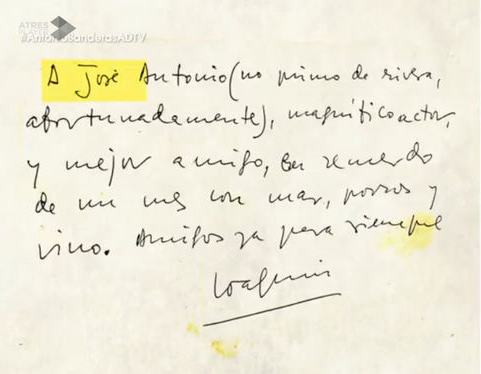 ATRES
PLAYER
#AntonioBanderasADTV
A José Antonio (no primo de rivera,
afortunadamente), magnífico actor,
y mejor amigo, en recuerdo
de un mes con mar, porros y
vino. Amigos ya para siempre
Joaquín